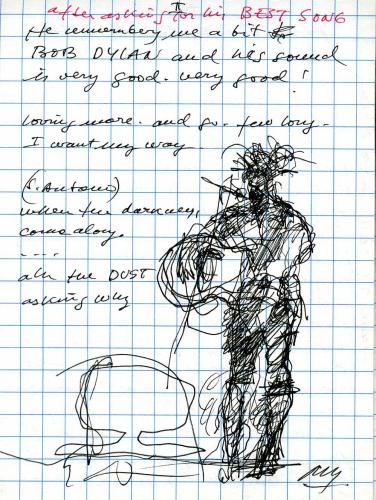 after asking for his BEST SONG
II
He remembery me a bit
BOB DYLAN and his sound
is very good. very good!
loving more. and go. few long.
I want my way.
(S. Antonio)
when the darkness,
come along.
....
all the DUST
asking why